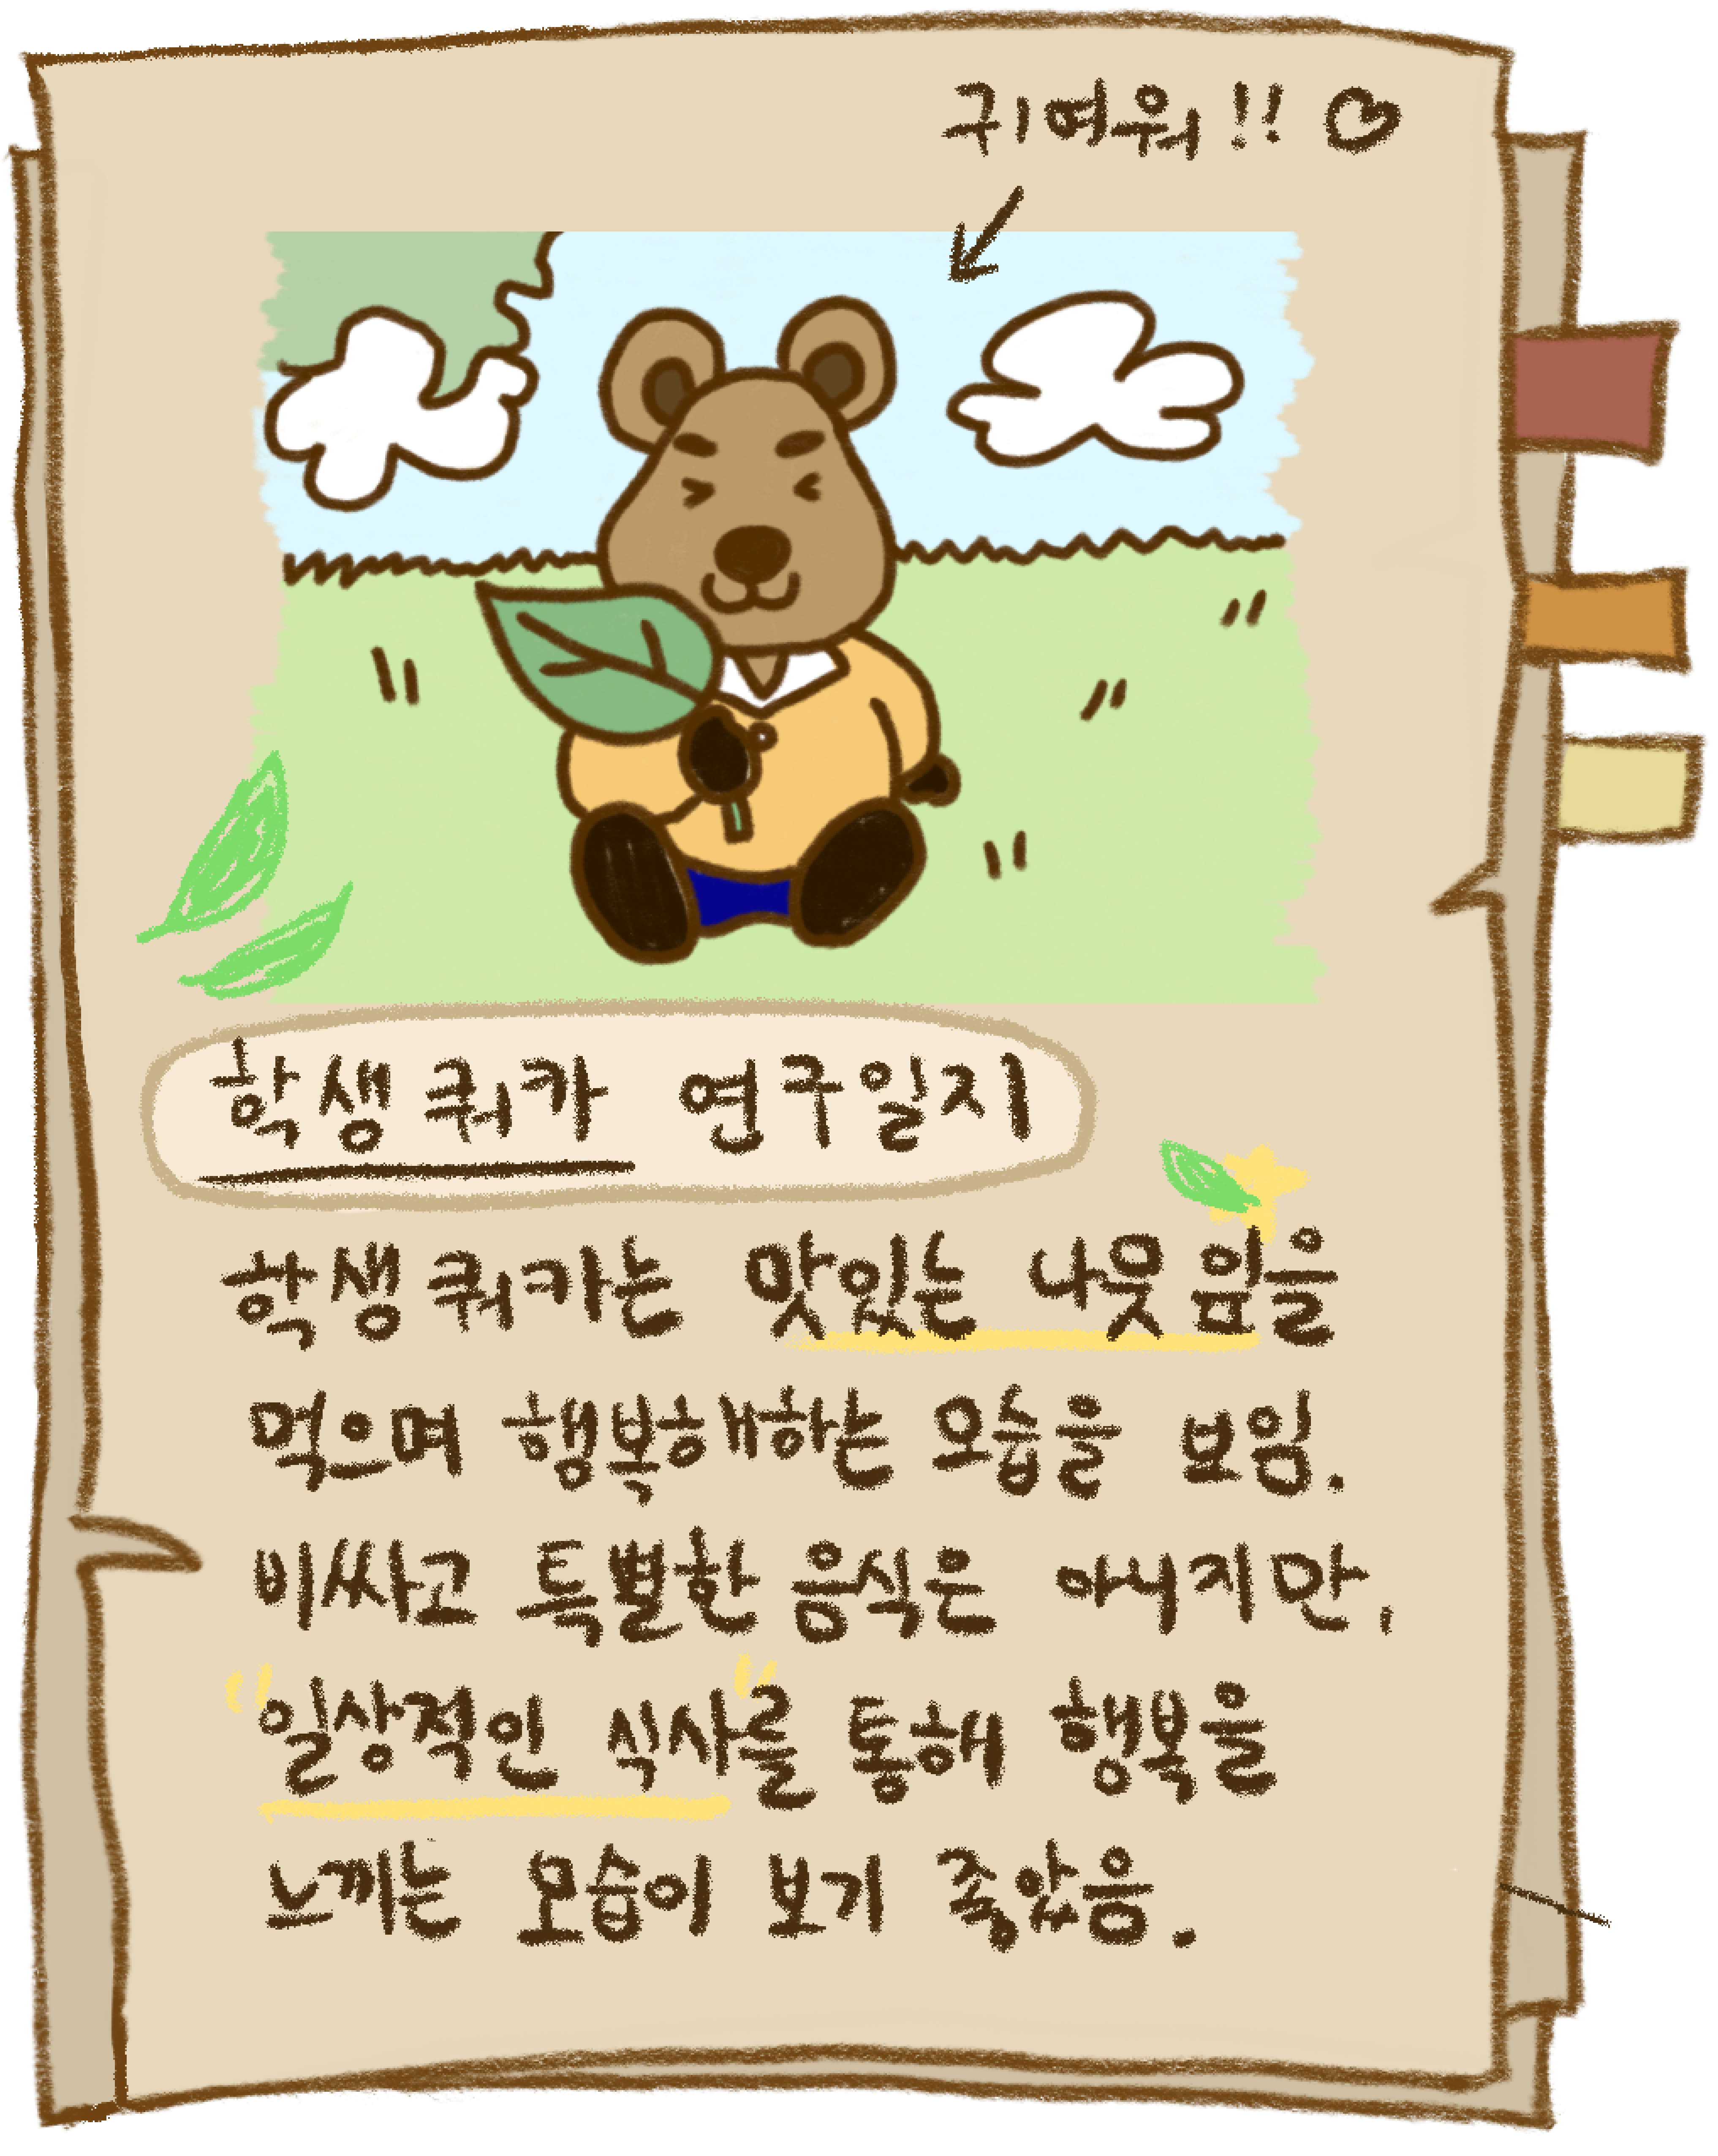 귀여워!! ♡
학생쿼카 연구일지
학생쿼카는 맛있는 나뭇잎을
먹으며 행복해하는 모습을 보임.
비싸고 특별한 음식은 아니지만,
"일상적인 식사"를 통해 행복을
느끼는 모습이 보기 좋았음.